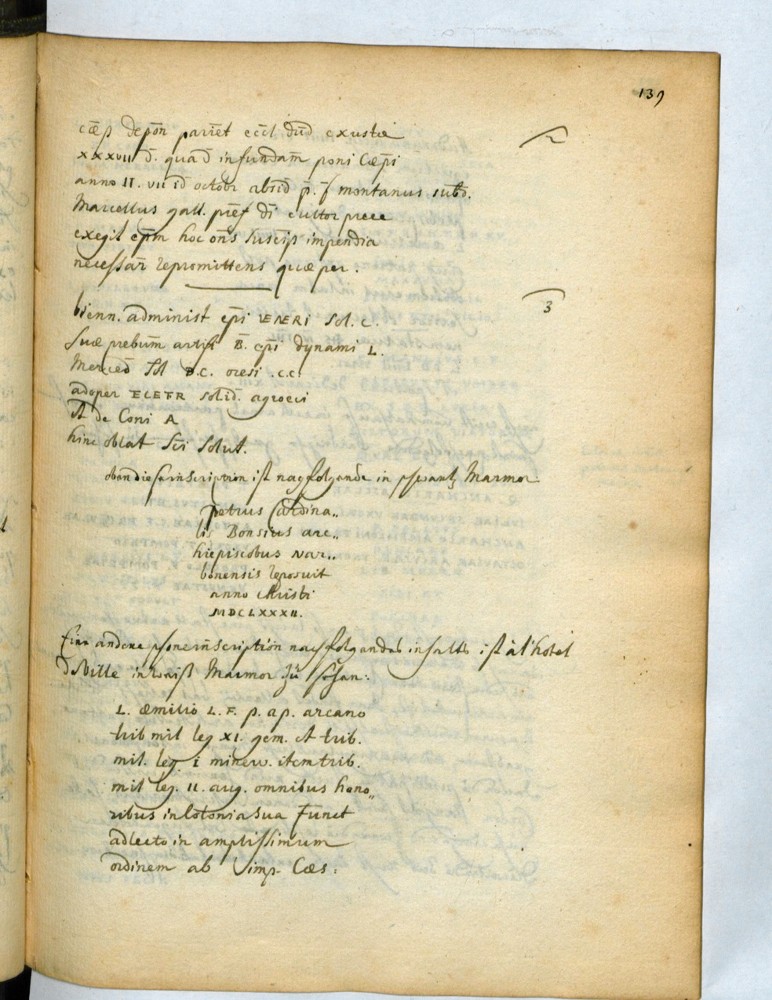 139
cæp depōn pariēt eccl dūd exustæ
2
xxxvii d. quad infundam poni Cæpi
anno II. vii id octobr absid p. f montanus subd.
Marcellus gall. præf di cultor prece
exegit epm hoc ons suscip impendia
necessar repromittens quæ per.
3
bienn. administ epi VENERI Sol. C.
Suæ prebum artif B. epi dynami L.
Merced Sol D.C. oresi .CC.
adoper ELETR solid. agroeci
et de Coni A
hinc oblat Sci Solut.
ober diese inscription ist nachfolgende in Marmor.
petrus Cardina..
lis Bonsius arc..
hiepiscobus Nar..
bonensis reposuit
anno Christi
MDCLXXXII.
Eine andere schöne inscription nachfolgendes inhalts ist à l'hotel
de Ville in weiß Marmor zu sehen:
L. æmilio L. F. p. ap. arcano
trib mil leg XI. gem. et trib.
mil. leg i minerv. item trib.
mil leg. II. aug. omnibus hono„
ribus in Colonia sua Funct
adlecto in amplissimum
ordinem ab imp. Cæs: